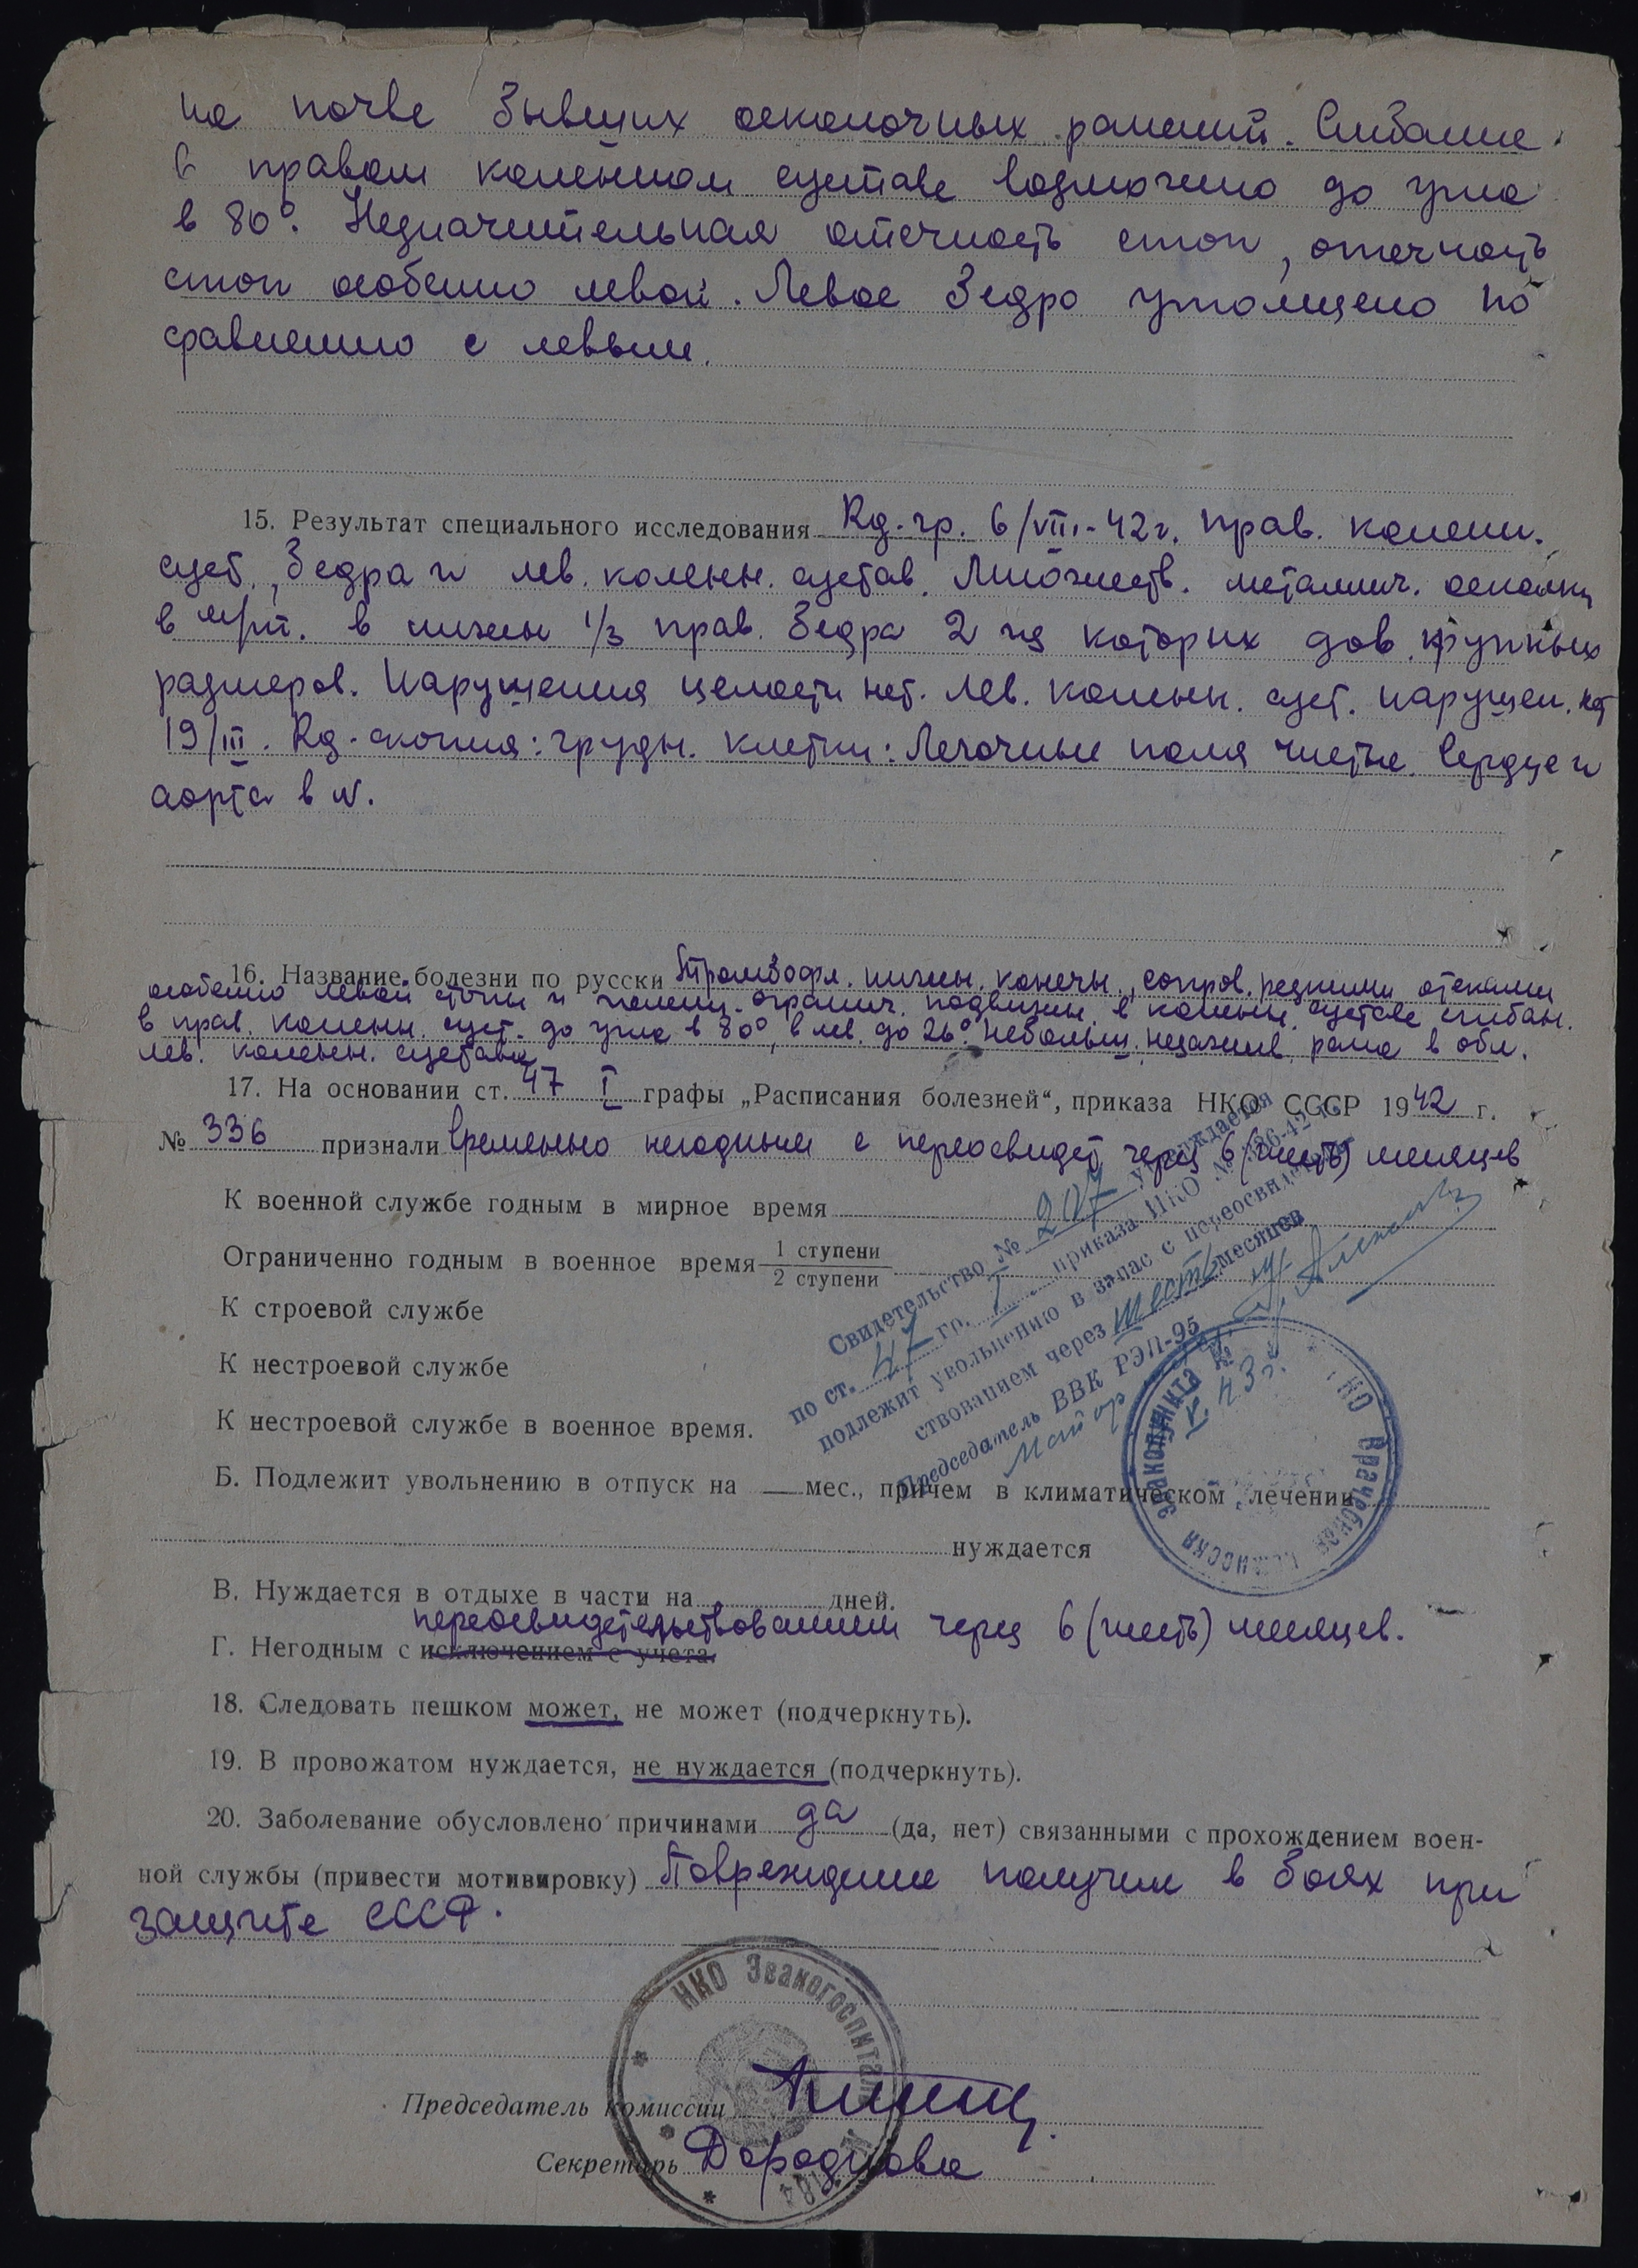 на почве бывших осколочных ранений. Сгибание
в правом коленном суставе возможно до угла
в 80°. Незначительная отечность стоп, отечность
стоп особенно левой. Левое бедро утолщено по
сравнению с левым.
15. Результат специального исследования Rg-гр. 6/VIII-42г. прав. коленн.
суст., бедра и лев. коленн. сустав. Множеств. металлич. осколки
в мягк. в нижн 1/3 прав. бедра 2 из которых дов. крупных
размеров. Нарушения целости нет. Лев. коленн. суст. нарушен. нет
19/III. Rg-скопия: грудн. клетки: Легочные поля чистые. Сердце и
аорта в N.
16. Название болезни по русски Тромбофл. нижн. конечн., сопров. резкими отеками
особенно левой стопы и голени. огранич. подвижн. в коленн. суставе сгибан.
в прав. коленн. суст. до угла в 80°, в лев. до 26°. Небольш. незажив. рана в обл.
лев. коленн. сустава
17. На основании ст. 47 I графы „Расписания болезней“, приказа НКО СССР 1942 г.
№ 336 признали временно негодным с переосвидет через 6 (шесть) месяцев
К военной службе годным в мирное время
Ограниченно годным в военное время 1 ступени
2 ступени
К строевой службе
К нестроевой службе
К нестроевой службе в военное время.
Свидетельство № 207 утверждается
по ст. 47 гр. I приказа НКО № 336-42 г.
подлежит увольнению в запас с переосвидетель-
ствованием через шесть месяцев
Председатель ВВК РЭП-95
майор
43 г.
НКО Врачебная комиссия Эвакопункта №
Б. Подлежит увольнению в отпуск на — мес., причем в климатическом лечении
нуждается
В. Нуждается в отдыхе в части на дней.
переосвидетельствованием через 6 (шесть) месяцев.
Г. Негодным с исключением с учета.
18. Следовать пешком может, не может (подчеркнуть).
19. В провожатом нуждается, не нуждается (подчеркнуть).
20. Заболевание обусловлено причинами да (да, нет) связанными с прохождением воен-
ной службы (привести мотивировку) Повреждение получил в боях при
защите СССР.
НКО Эвакогоспиталь
Председатель комиссии
Секретарь